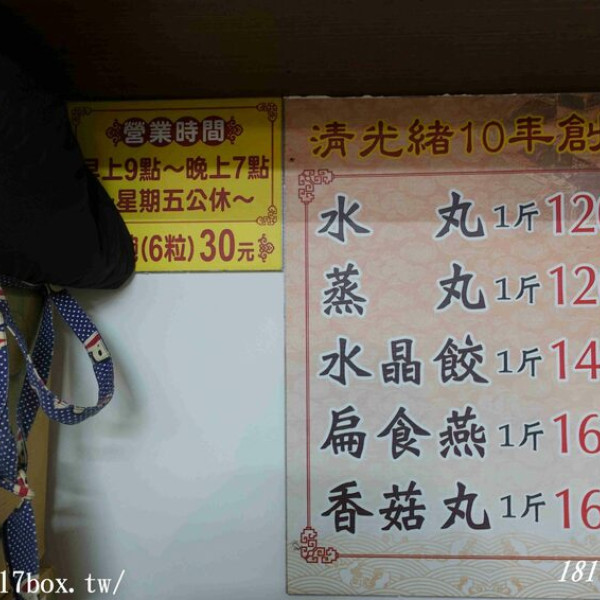 營業時間
早上9點～晚上7點
星期五公休～
(6粒) 30元
清光緒10年創
水丸 1斤 120
蒸丸 1斤 12
水晶餃 1斤 14
扁食燕 1斤 16
香菇丸 1斤 16
17box.tw/
181